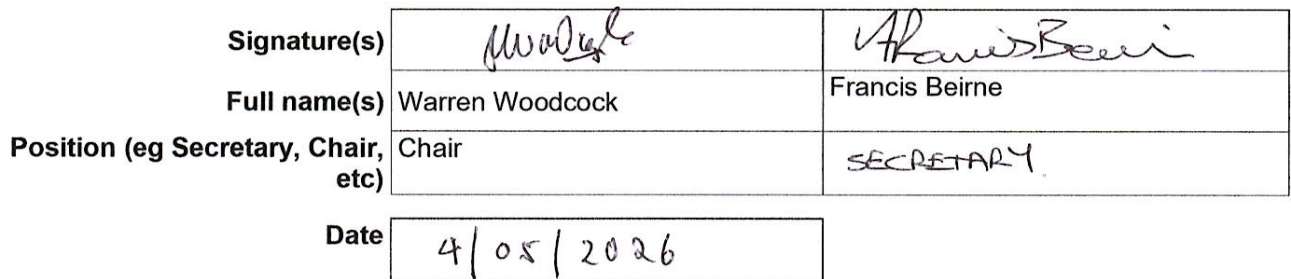 Signature(s)
Francis Beirne
Full name(s) Warren Woodcock
Position (eg Secretary, Chair, Chair SECRETARY
etc)
Date 4/05/2026